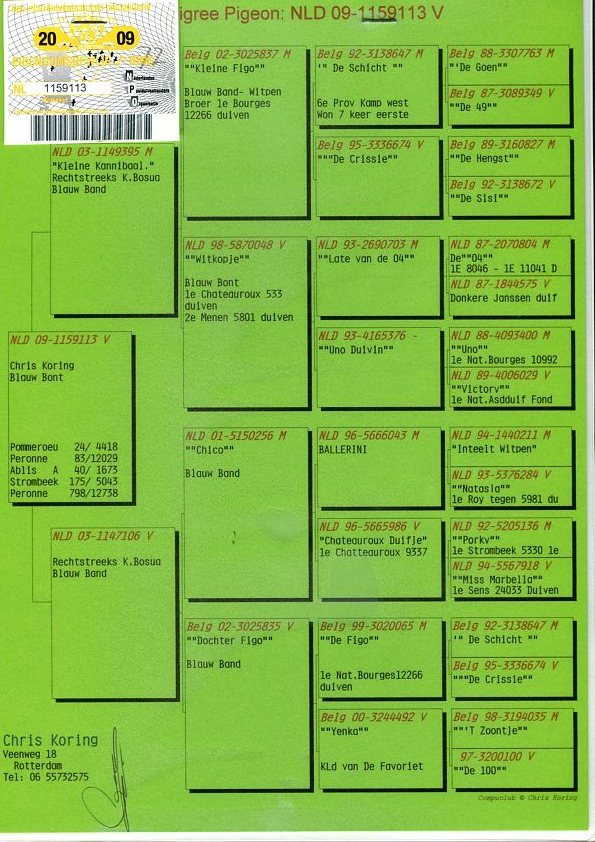 igree Pigeon: NLD 09-1159113 V
20 09
NL 1159113
NLD 09-1159113 V
Chris Koring
Blauw Bont
Pommeroeu 24/ 4418
Peronne 83/12029
Ablis A 40/ 1673
Strombeek 175/ 5043
Peronne 798/12738
NLD 03-1149395 M
"Kleine Kannibaal."
Rechtstreeks K.Bosua
Blauw Band
NLD 03-1147106 V
Rechtstreeks K.Bosua
Blauw Band
Belg 02-3025837 M
""Kleine Figo""
Blauw Band- Witpen
Broer 1e Bourges
12266 duiven
NLD 98-5870048 V
""Witkopje""
Blauw Bont
1e Chateauroux 533
duiven
2e Menen 5801 duiven
NLD 01-5150256 M
""Chico""
Blauw Band
Belg 02-3025835 V
""Dochter Figo""
Blauw Band
Belg 92-3138647 M
'" De Schicht ""
6e Prov Kamp west
Won 7 keer eerste
Belg 95-3336674 V
"""De Crissie""
NLD 93-2690703 M
""Late van de 04""
NLD 93-4165376 -
""Uno Duivin""
NLD 96-5666043 M
BALLERINI
NLD 96-5665986 V
"Chateauroux Duifje"
1e Chatteauroux 9337
Belg 99-3020065 M
""De Figo""
1e Nat.Bourges12266
duiven
Belg 00-3244492 V
""Yenka""
KLd van De Favoriet
Belg 88-3307763 M
"'De Goen""
Belg 87-3089349 V
""De 49""
Belg 89-3160827 M
""De Hengst""
Belg 92-3138672 V
""De Sisi""
NLD 87-2070804 M
De""04""
1E 8046 - 1E 11041 D
NLD 87-1844575 V
Donkere Janssen duif
NLD 88-4093400 M
""Uno""
1e Nat.Bourges 10992
NLD 89-4006029 V
""Victory""
1e Nat.Asdduif Fond
NLD 94-1440211 M
"Inteelt Witpen"
NLD 93-5376284 V
""Natasia""
1e Roy tegen 5981 du
NLD 92-5205136 M
""Porky""
1e Strombeek 5330 1e
NLD 94-5567918 V
""Miss Marbella""
1e Sens 24033 Duiven
Belg 92-3138647 M
'" De Schicht ""
Belg 95-3336674 V
"""De Crissie""
Belg 98-3194035 M
""'T Zoontje""
97-3200100 V
""De 100""
Chris Koring
Veenweg 18
Rotterdam
Tel: 06 55732575
Compuclub © Chris Koring